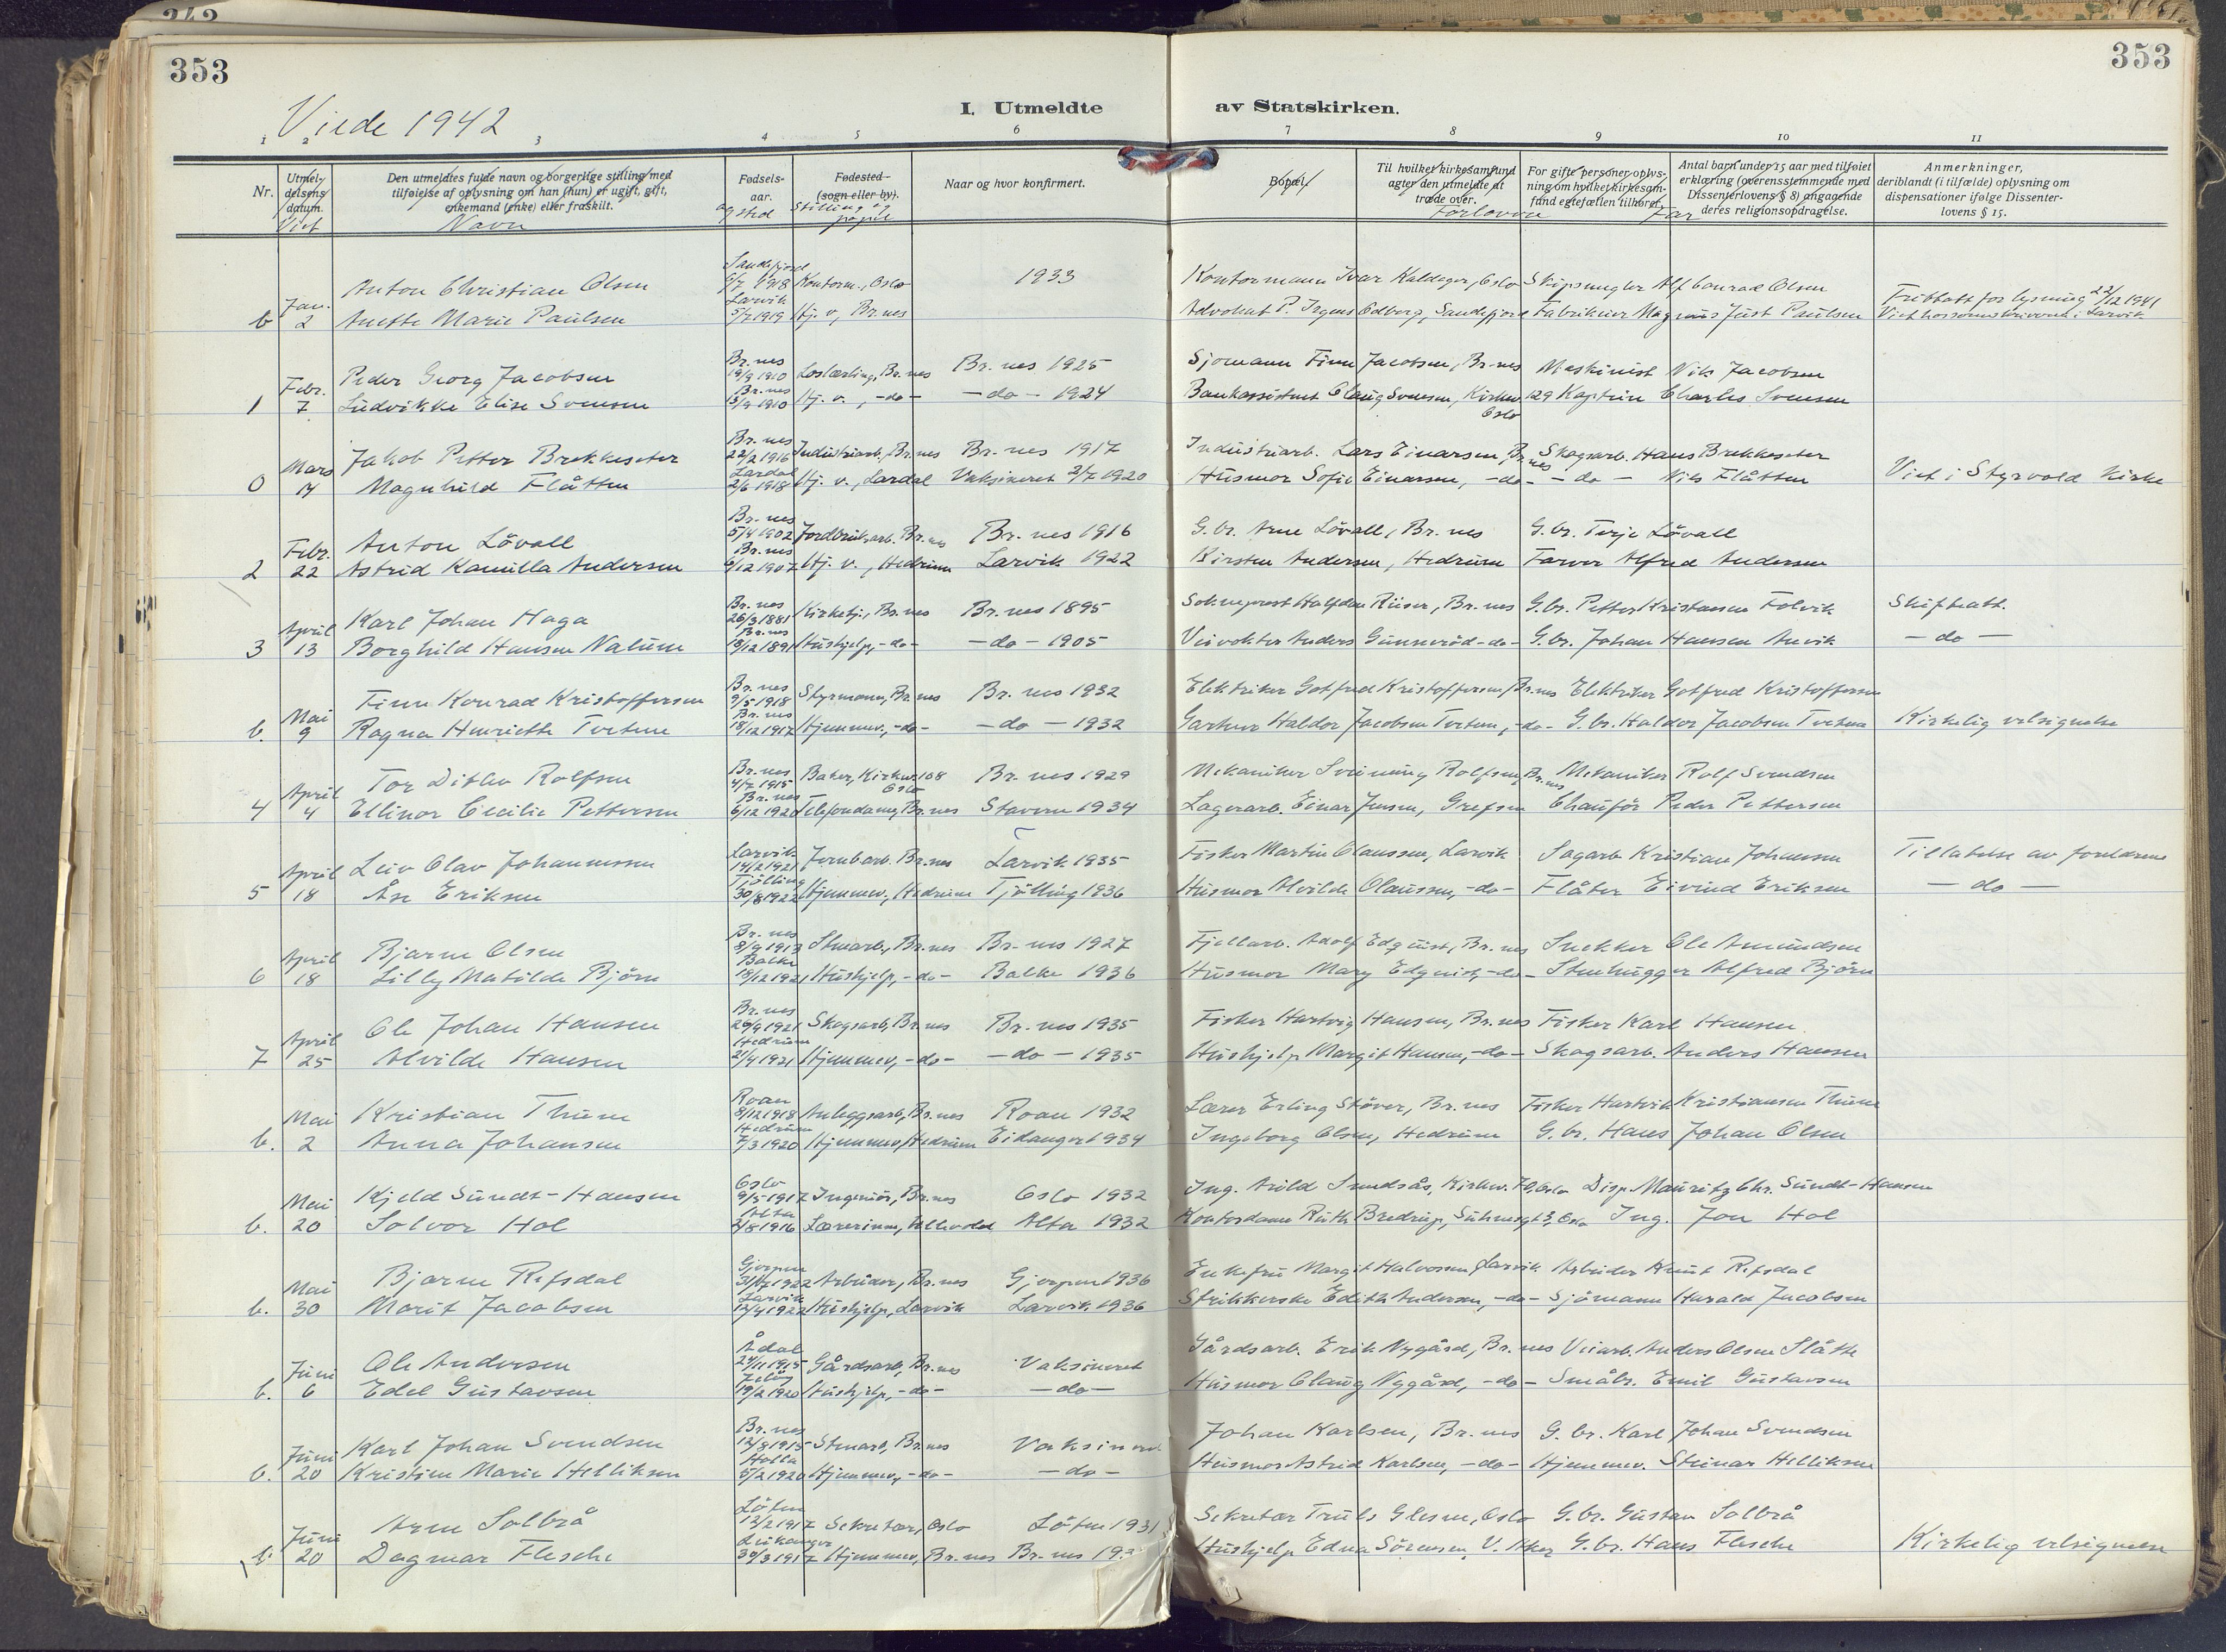 353
353
Viede 1942
I. Utmeldte av Statskirken.
1 2 3 4 5 6 7 8 9 10 11
Nr.
Utmeldelsens datum.
Viet
Den utmeldtes fulde navn og borgerlige stilling med
tilføielse af oplysning om han (hun) er ugift, gift,
enkemand (enke) eller fraskilt.
Navn
Fødsels-
aar.
og sted
Fødested
(sogn eller by).
Stilling og
Naar og hvor konfirmert.
Bopæl.
Til hvilket kirkesamfund
agter den utmeldte at
træde over.
Forlovere
For gifte personer oplys-
ning om hvilket kirkesam-
fund egtefællen tilhører.
Far
Antal barn under 15 aar med tilføiet
erklæring (overensstemmende med
Dissenterlovens § 8) angaaende
deres religionsopdragelse.
Anmerkninger,
deriblandt (i tilfælde) oplysning om
dispensationer ifølge Dissenter-
lovens § 15.
Sandefjord
Anton Christian Olsen 6/7 1918 Kontorm., Oslo 1933 Kontormann Ivar Kaldager, Oslo Skipsmegler Alf Conrad Olsen
b Jan. 2 Larvik
Anette Marie Paulsen 5/7 1919 Hj. v., Br.nes Advokat P. Irgens Odberg, Sandefjord Fabrikeier Magnus Just Paulsen Fritatt for lysning 22/12 1941
Viet hos sorenskriveren i Larvik
Br.nes
Peder Georg Jacobsen 19/9 1910 Loslærling, Br.nes Br.nes 1925 Sjømann Finn Jacobsen, Br.nes Maskinist Nik Jacobsen
1 Febr. 7 Br.nes
Ludvikke Elise Svensen 13/9 1910 Hj. v., -do- -do- 1924 Bankassistent Claug Svensen, Kirkev. 129 Kaptein Charles Svensen
Oslo
Br.nes
Jakob Petter Brekkeseter 22/2 1916 Industriarb., Br.nes Br.nes 1917 Industriarb. Lars Einarsen, Br.nes Skogsarb. Hans Brekkeseter
0 Mars 14 Lardal
Magnhild Flåtten 2/6 1918 Hj. v., Lardal Vaksineret 2/7 1920 Husmor Sofie Einarsen, -do- -do- Nils Flåtten Viet i Styrvold kirke
Br.nes
Anton Lövall 5/4 1902 Jordbruksarb. Br.nes Br.nes 1916 G.br. Arne Lövall, Br.nes G.br. Terje Lövall
2 Febr. 22 Br.nes
Astrid Kamilla Andersen 6/12 1907 Hj. v., Hedrum Larvik 1922 Kirsten Andersen, Hedrum Farver Alfred Andersen
Br.nes
Karl Johan Haga 26/3 1881 Kirketj., Br.nes Br.nes 1895 Sokneprest Halfdan Riiser, Br.nes G.br. Petter Kristiansen Folvik Skifteatt.
3 April 13 Br.nes
Borghild Hansen Nalum 19/12 1891 Hushjelp, -do- -do- 1905 Veivokter Anders Gunneröd -do- G.br. Johan Hansen Anvik -do-
Br.nes
Finn Konrad Kristoffersen 9/5 1918 Styrmann, Br.nes Br.nes 1932 Elektriker Gotfred Kristoffersen, Br.nes Elektriker Gotfred Kristoffersen
b. Mai 9 Br.nes
Ragna Henriette Tveten 18/12 1917 Hjemmev., -do- -do- 1932 Gartner Haldor Jacobsen Tveten, -do- G.br. Haldor Jacobsen Tveten Kirkelig velsignelse
Br.nes
Tor Ditlev Rolfsen 4/7 1915 Baker, Kirkev. 108 Oslo Br.nes 1929 Mekaniker Sveinung Rolfsen, Br.nes Mekaniker Rolf Svendsen
4 April 4 Br.nes
Ellinor Cecilie Pettersen 6/12 1920 Telefondame, Br.nes Stavern 1934 Lagerarb. Einar Jensen, Grefsen Chauför Peder Pettersen
Larvik
Leiv Olav Johannessen 14/2 1921 Jernbarb. Br.nes Larvik 1935 Fisker Martin Claussen, Larvik Sagarb. Kristian Johansen Tillatelse av foreldrene
5 April 18 Tjölling
Åse Eriksen 30/8 1922 Hjemmev., Hedrum Tjölling 1936 Husmor Alvilde Claussen, -do- Flåter Eivind Eriksen -do-
Br.nes
Bjarne Olsen 8/9 1913 Stenarb., Br.nes Br.nes 1927 Fjellarb. Adolf Edquist, Br.nes Snekker Ole Amundsen
6 April 18 Balke
Lilly Matilde Björn 18/12 1921 Hushjelp, -do- Balke 1936 Husmor Mary Edquist, -do- Stenhugger Alfred Björn
Br.nes
Ole Johan Hansen 26/9 1921 Skogsarb, Br.nes Br.nes 1935 Fisker Hartvig Hansen, Br.nes Fisker Karl Hansen
7 April 25 Hedrum
Alvilde Hansen 21/4 1921 Hjemmev, -do- -do- 1935 Hushjelp Margit Hansen, -do- Skogsarb. Anders Hansen
Roan
Kristian Thune 8/12 1918 Anleggsarb, Br.nes Roan 1932 Lærer Erling Stöver, Br.nes Fisker Hartvik Kristiansen Thune
b. Mai 2 Hedrum
Anna Johansen 7/3 1920 Hjemmev, Hedrum Eidanger 1934 Ingeborg Olsen, Hedrum G.br. Hans Johan Olsen
Oslo
Kjeld Sundt-Hansen 9/5 1917 Ingeniör, Br.nes Oslo 1932 Ing. Arild Smedsås, Kirkev. 70, Oslo Disp. Mauritz Chr. Sundt-Hansen
b. Mai 20 Alta
Solvor Hol 2/8 1916 Lærerinne, Ullevold Alta 1932 Kontordame Ruth Bredrup, Suhmsgt 3, Oslo Ing. Jon Hol
Gjerpen
Bjarne Refsdal 31/7 1922 Arbeider, Br.nes Gjerpen 1936 Enkefru Margit Halvorsen, Larvik Arbeider Knut Refsdal
b. Mai 30 Larvik
Marit Jacobsen 12/4 1922 Hushjelp, Larvik Larvik 1936 Strikkerske Edith Andersen, -do- Sjömann Harald Jacobsen
Ådal
Ole Andersen 24/11 1915 Gårdsarb, Br.nes Vaksineret Gårdsarb. Erik Nygård, Br.nes Veiarb. Anders Olsen Slåtte
b. Juni 6 Jelöy
Edel Gustavsen 19/2 1920 Hushjelp, -do- -do- Husmor Claug Nygård, -do- Småbr. Emil Gustavsen
Br.nes
Karl Johan Svendsen 12/8 1915 Stenarb, Br.nes Vaksineret Johan Karlsen, Br.nes G.br. Karl Johan Svendsen
b. Juni 20 Holla
Kristine Marie Helliksen 5/2 1920 Hjemmev, -do- -do- Husmor Astrid Karlsen, -do- Hjemmev. Steinar Helliksen
Löten
Arne Solbrå 12/2 1917 Sekretær, Oslo Löten 1931 Sekretær Truls Glesne, Oslo G.br. Gustav Solbrå
b. Juni 20 Leikanger
Dagmar Flesche 30/3 1917 Hjemmev, Br.nes Br.nes 19 Hushjelp Edna Sörensen, V. Aker G.br. Hans Flesche Kirkelig velsignelse